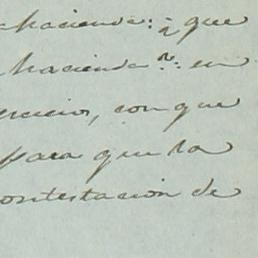 hacienda: à que
hacienda en
ercicio, con que
para que la
contestacion de